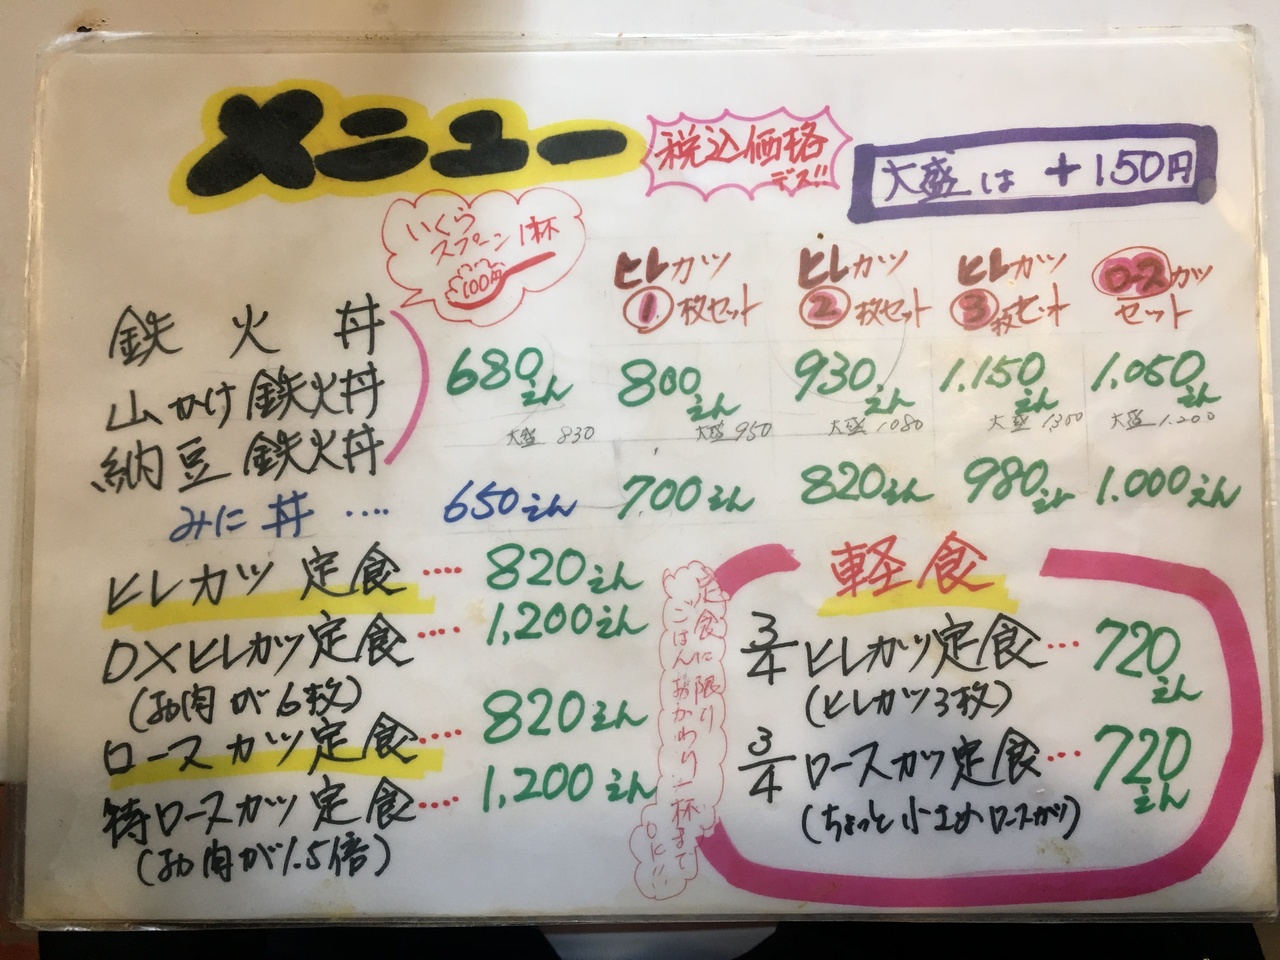 メニュー
税込価格
デス!!
大盛は +150円
いくら
スプーン1杯
100円
ヒレカツ
①枚セット
ヒレカツ
②枚セット
ヒレカツ
③枚セット
ロースカツ
セット
鉄火丼
山かけ鉄火丼
納豆鉄火丼
680えん
800えん
930えん
1.150えん
1.050えん
大盛 830
大盛 950
大盛 1080
大盛 1300
大盛 1.200
みに丼 ‥‥ 650えん 700えん 820えん 980えん 1.000えん
ヒレカツ定食 ‥‥ 820えん
DXヒレカツ定食 ‥‥ 1,200えん
(お肉が6枚)
ロースカツ定食 ‥‥ 820えん
特ロースカツ定食 ‥‥ 1,200えん
(お肉が1.5倍)
定食に限り
ごはんおかわり一杯まで
OKに!!
軽食
3/4 ヒレカツ定食 … 720えん
(ヒレカツ3枚)
3/4 ロースカツ定食 … 720えん
(ちょっと小さめロースカツ)